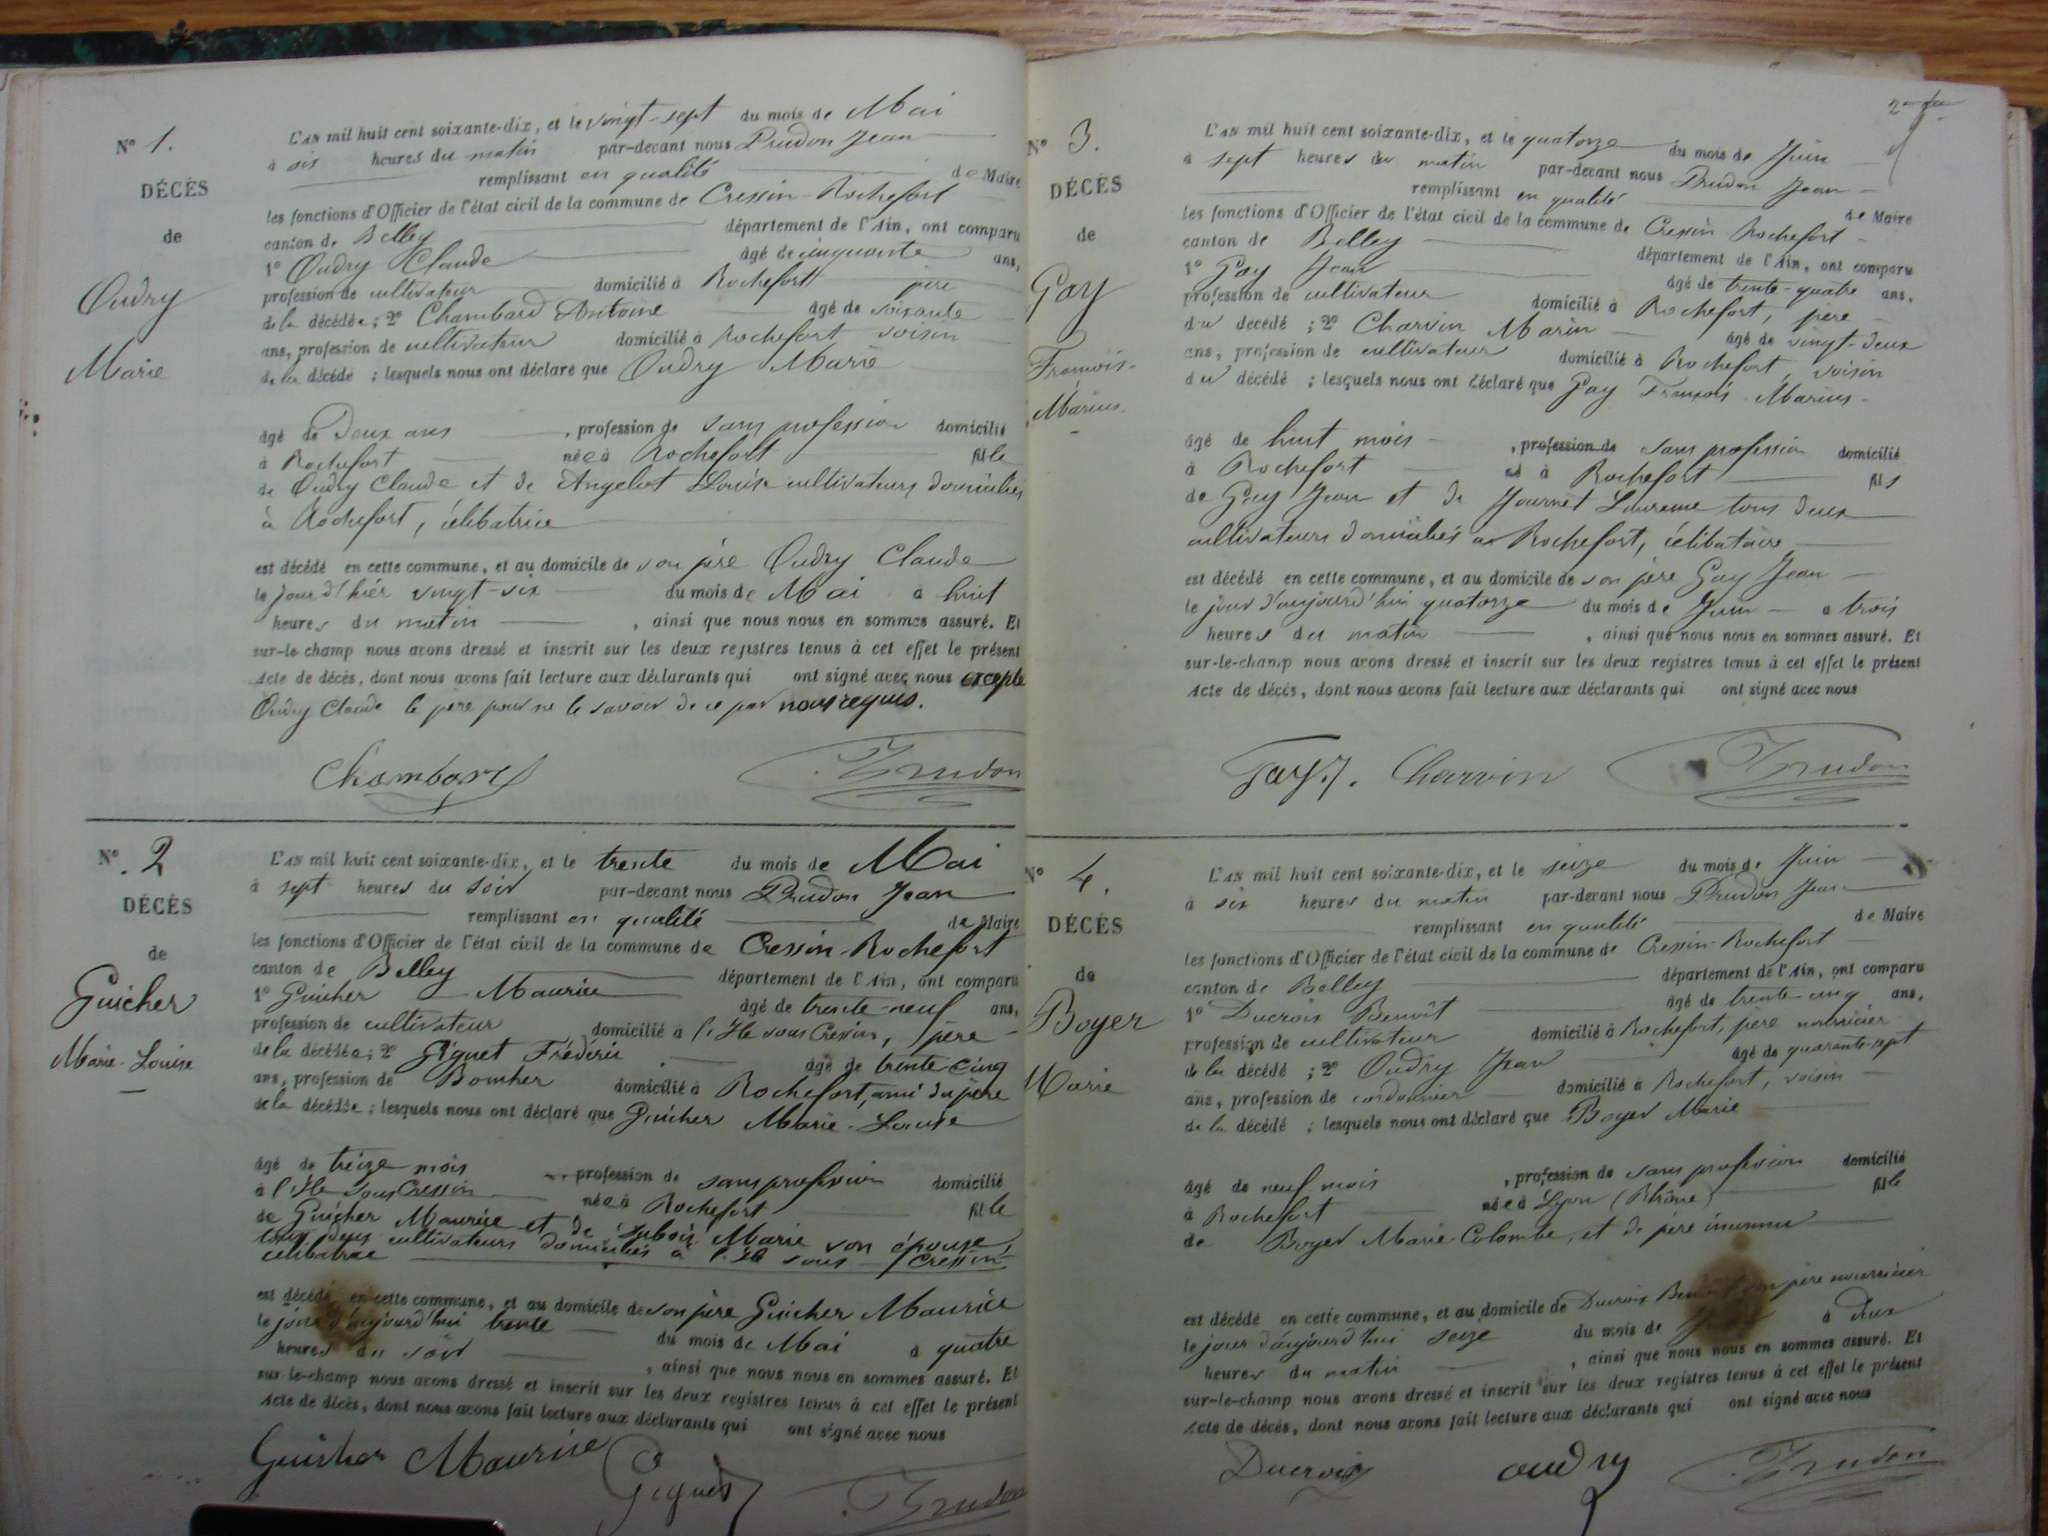 N° 1.
DÉCÈS
de
Oudry
Marie
L'AN mil huit cent soixante-dix, et le vingt-sept du mois de Mai
à six heures du matin par-devant nous Prudon Jean
remplissant en qualité de Maire
les fonctions d'Officier de l'état civil de la commune de Cressin-Rochefort
canton de Belley département de l'Ain, ont comparu
1° Oudry Claude âgé de cinquante ans,
profession de cultivateur domicilié à Rochefort père
de la décédée; 2° Chambard Antoine âgé de soixante
ans, profession de cultivateur domicilié à Rochefort voisin
de la décédé ; lesquels nous ont déclaré que Oudry Marie
âgé de deux ans , profession de sans profession domicilié
à Rochefort née à Rochefort fille
de Oudry Claude et de Angelot Louise cultivateurs domiciliés
à Rochefort, célibatrice
est décédé en cette commune, et au domicile de son père Oudry Claude
le jour d'hier vingt-six du mois de Mai à huit
heures du matin , ainsi que nous nous en sommes assuré. Et
sur-le-champ nous avons dressé et inscrit sur les deux registres tenus à cet effet le présent
Acte de décès, dont nous avons fait lecture aux déclarants qui ont signé avec nous excepté
Oudry Claude le père pour ne le savoir de ce par nous requis.
Chambard Prudon
N° 2
DÉCÈS
de
Guicher
Marie-Louise
L'AN mil huit cent soixante-dix, et le trente du mois de Mai
à sept heures du soir par-devant nous Prudon Jean
remplissant en qualité de Maire
les fonctions d'Officier de l'état civil de la commune de Cressin-Rochefort
canton de Belley département de l'Ain, ont comparu
1° Guicher Maurice âgé de trente-neuf ans,
profession de cultivateur domicilié à l'Ile sous Cressin, père
de la décédée; 2° Giguet Frédéric âgé de trente cinq
ans, profession de domicilié à Rochefort, ami du père
de la décédée; lesquels nous ont déclaré que Guicher Marie-Louise
âgé de treize mois profession de sans profession domicilié
à l'Ile sous Cressin née à Rochefort fille
de Guicher Maurice et de Dubois Marie son épouse,
tous deux cultivateurs domiciliés à l'Ile sous Cressin
célibatrice
est décédé en cette commune, et au domicile de son père Guicher Maurice
le jour d'aujourd'hui trente du mois de Mai à quatre
heures du soir , ainsi que nous nous en sommes assuré. Et
sur-le-champ nous avons dressé et inscrit sur les deux registres tenus à cet effet le présent
Acte de décès, dont nous avons fait lecture aux déclarants qui ont signé avec nous
Guicher Maurice Giguet Prudon
N° 3.
DÉCÈS
de
Gay
François-
Marius.
L'AN mil huit cent soixante-dix, et le quatorze du mois de Juin
à sept heures du matin par-devant nous Prudon Jean
remplissant en qualité de Maire
les fonctions d'Officier de l'état civil de la commune de Cressin Rochefort
canton de Belley département de l'Ain, ont comparu
1° Gay Jean âgé de trente-quatre ans,
profession de cultivateur domicilié à Rochefort, père
du décédé ; 2° Charvin Marin âgé de vingt-deux
ans, profession de cultivateur domicilié à Rochefort, voisin
du décédé ; lesquels nous ont déclaré que Gay François-Marius
âgé de huit mois , profession de sans profession domicilié
à Rochefort né à Rochefort fils
de Gay Jean et de Journet Laurence tous deux
cultivateurs domiciliés à Rochefort, célibataire
est décédé en cette commune, et au domicile de son père Gay Jean
le jour d'aujourd'hui quatorze du mois de Juin à trois
heures du matin , ainsi que nous nous en sommes assuré. Et
sur-le-champ nous avons dressé et inscrit sur les deux registres tenus à cet effet le présent
Acte de décès, dont nous avons fait lecture aux déclarants qui ont signé avec nous
Gay.J. Charvin Prudon
N° 4.
DÉCÈS
de
Boyer
Marie
L'AN mil huit cent soixante-dix, et le seize du mois de Juin
à six heures du matin par-devant nous Prudon Jean
remplissant en qualité de Maire
les fonctions d'Officier de l'état civil de la commune de Cressin-Rochefort
canton de Belley département de l'Ain, ont comparu
1° Ducroix Benoît âgé de trente-cinq ans,
profession de cultivateur domicilié à Rochefort, père nourricier
de la décédé ; 2° Oudry Jean âgé de quarante-sept
ans, profession de cordonnier domicilié à Rochefort, voisin
de la décédé ; lesquels nous ont déclaré que Boyer Marie
âgé de neuf mois , profession de sans profession domicilié
à Rochefort née à Lyon (Rhône) fille
de Boyer Marie Colombe, et de père inconnu
est décédé en cette commune, et au domicile de Ducroix Benoît son père nourricier
le jour d'aujourd'hui seize du mois de Juin à deux
heures du matin , ainsi que nous nous en sommes assuré. Et
sur-le-champ nous avons dressé et inscrit sur les deux registres tenus à cet effet le présent
Acte de décès, dont nous avons fait lecture aux déclarants qui ont signé avec nous
Ducroix oudry Prudon